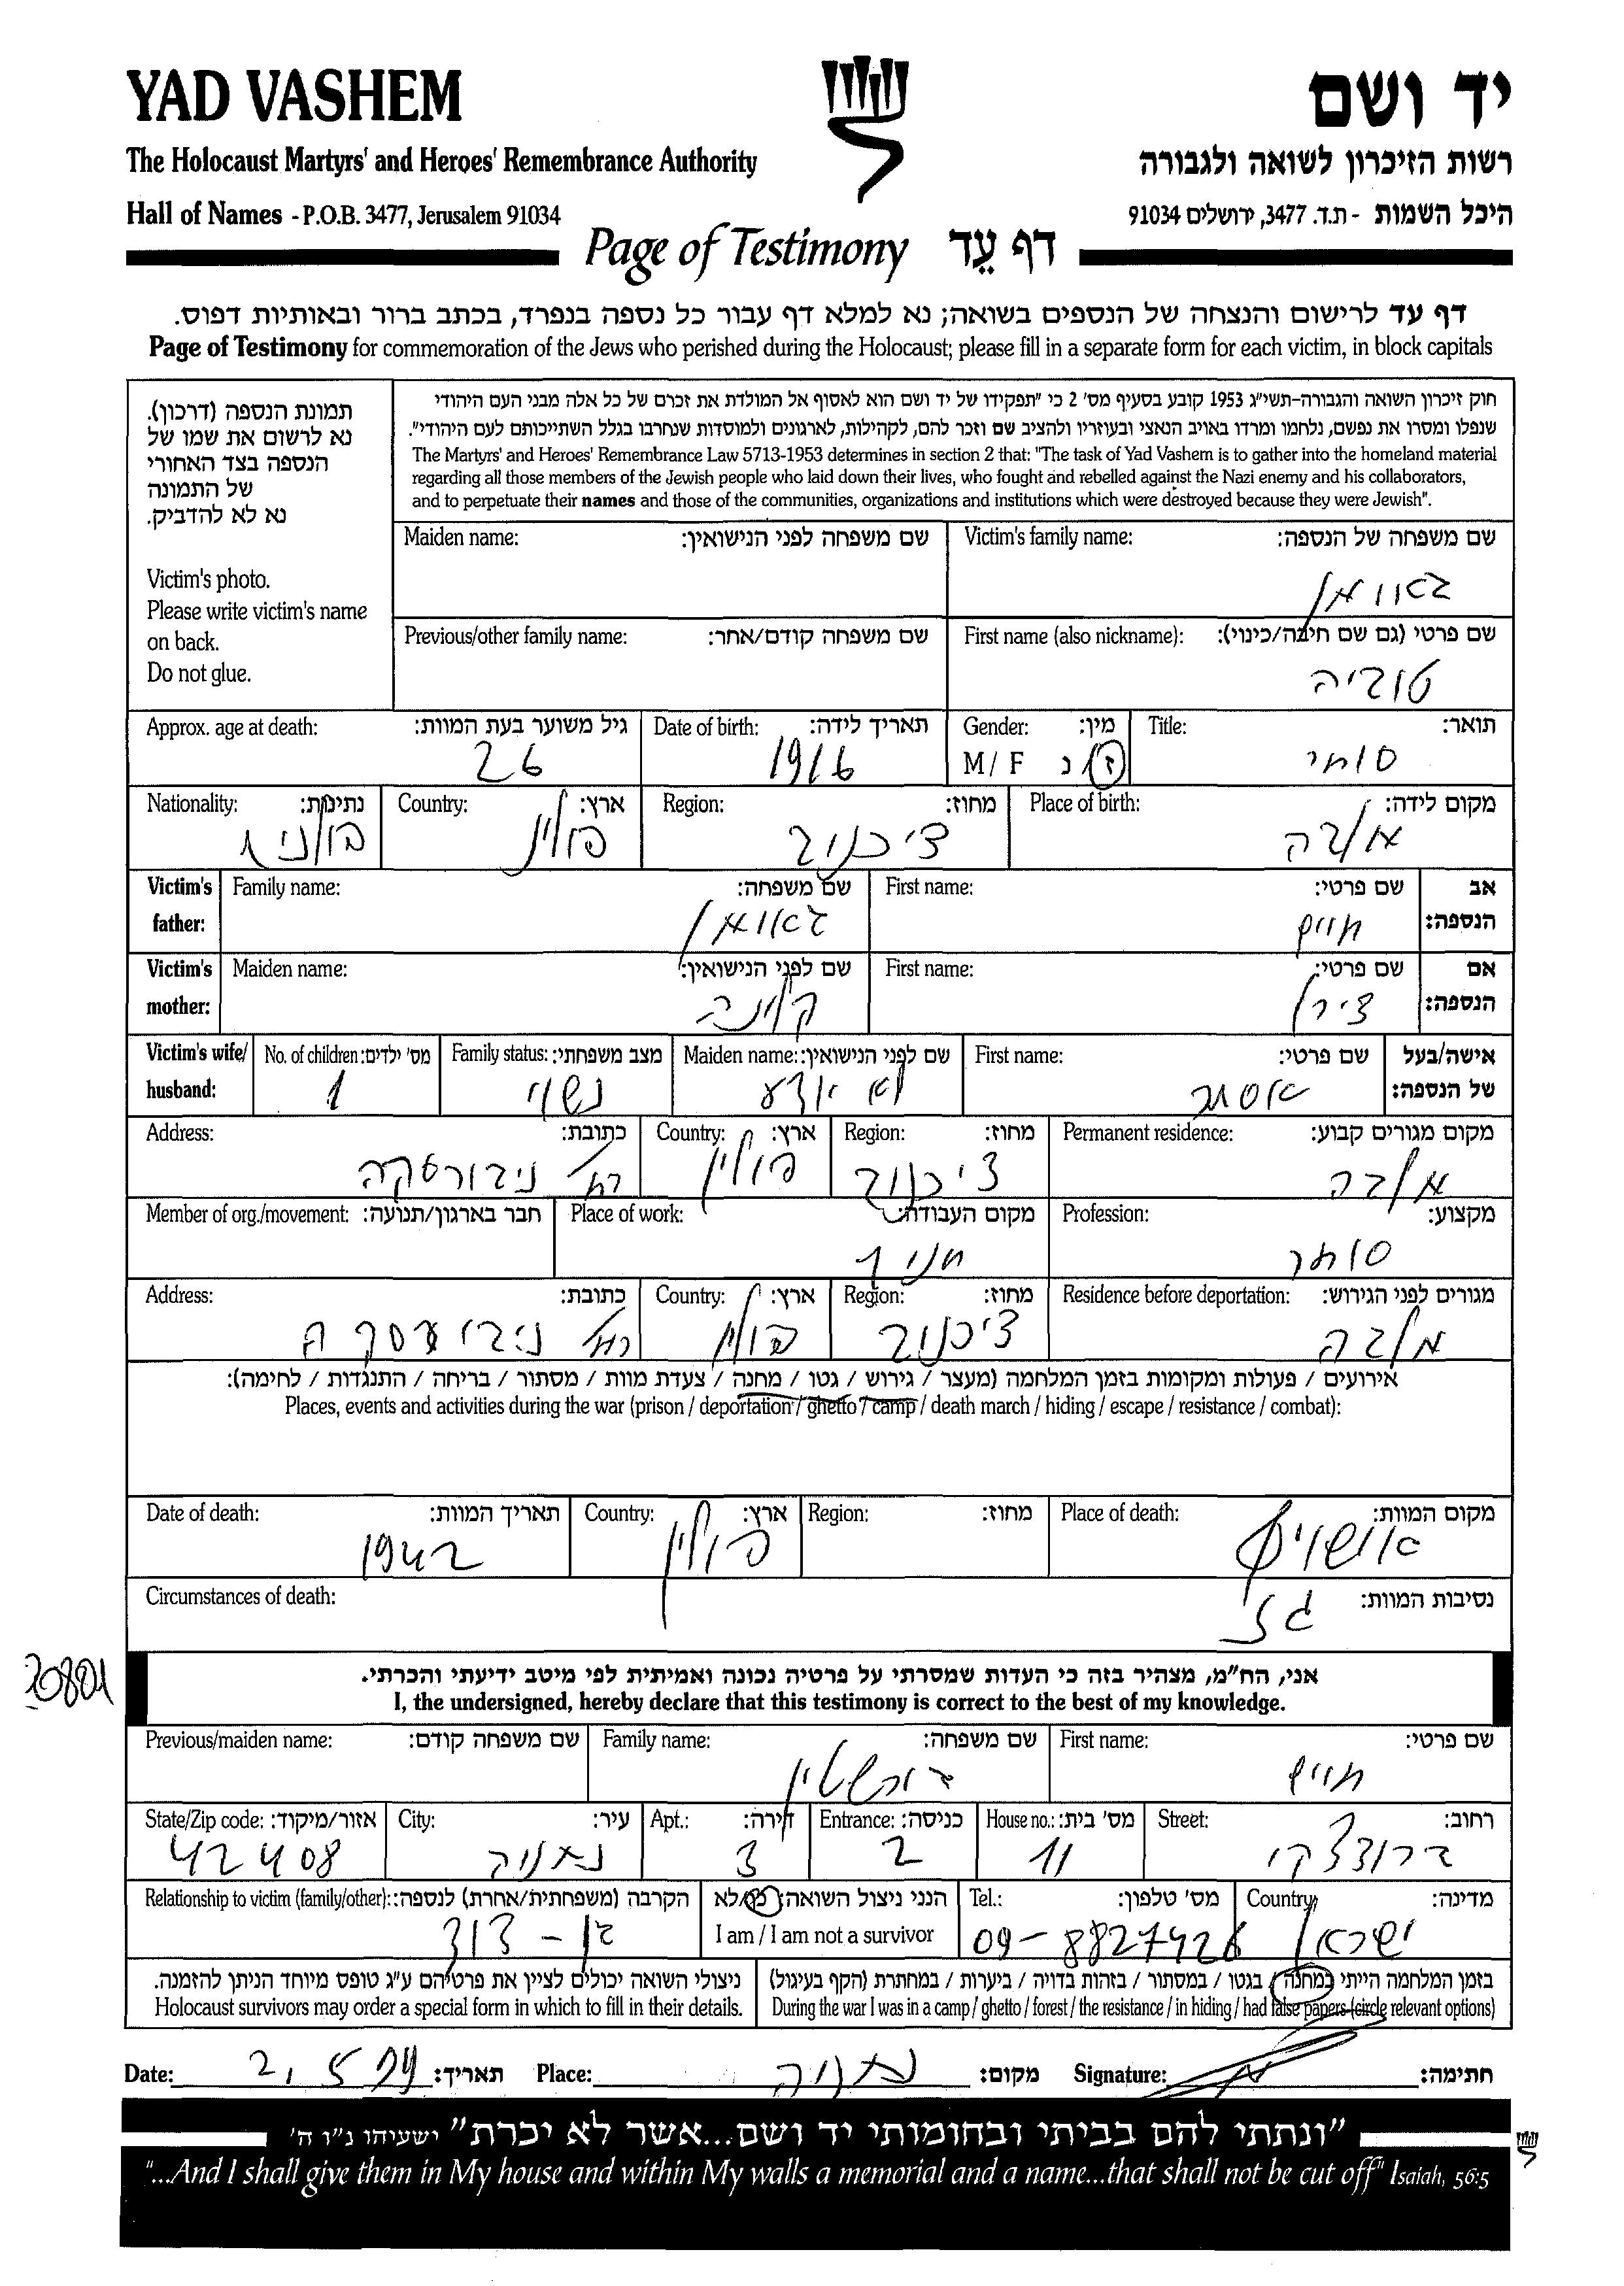 YAD VASHEM
יד ושם
The Holocaust Martyrs' and Heroes' Remembrance Authority
רשות הזיכרון לשואה ולגבורה
Hall of Names - P.O.B. 3477, Jerusalem 91034
היכל השמות - ת.ד. 3477, ירושלים 91034
Page of Testimony דף עֵד
דף עד לרישום והנצחה של הנספים בשואה; נא למלא דף עבור כל נספה בנפרד, בכתב ברור ובאותיות דפוס.
Page of Testimony for commemoration of the Jews who perished during the Holocaust; please fill in a separate form for each victim, in block capitals
תמונת הנספה (דרכון).
נא לרשום את שמו של
הנספה בצד האחורי
של התמונה
נא לא להדביק.
Victim's photo.
Please write victim's name
on back.
Do not glue.
חוק זיכרון השואה והגבורה-תשי"ג 1953 קובע בסעיף מס' 2 כי "תפקידו של יד ושם הוא לאסוף אל המולדת את זכרם של כל אלה מבני העם היהודי
שנפלו ומסרו את נפשם, נלחמו ומרדו באויב הנאצי ובעוזריו ולהציב שם וזכר להם, לקהילות, לארגונים ולמוסדות שנחרבו בגלל השתייכותם לעם היהודי".
The Martyrs' and Heroes' Remembrance Law 5713-1953 determines in section 2 that: "The task of Yad Vashem is to gather into the homeland material
regarding all those members of the Jewish people who laid down their lives, who fought and rebelled against the Nazi enemy and his collaborators,
and to perpetuate their names and those of the communities, organizations and institutions which were destroyed because they were Jewish".
Victim's family name: שם משפחה של הנספה:
באומן
Maiden name: שם משפחה לפני הנישואין:
First name (also nickname): שם פרטי (גם שם חיבה/כינוי):
טוביה
Previous/other family name: שם משפחה קודם/אחר:
Title: תואר:
סוחר
Gender: מין:
M / F ז/נ
Date of birth: תאריך לידה:
1916
Approx. age at death: גיל משוער בעת המוות:
26
Place of birth: מקום לידה:
מלבה
Region: מחוז:
ציכנוב
Country: ארץ:
פולין
Nationality: נתינות:
פולנית
Victim's father: אב הנספה:
First name: שם פרטי:
חיים
Family name: שם משפחה:
באומן
Victim's mother: אם הנספה:
First name: שם פרטי:
צירל
Maiden name: שם לפני הנישואין:
Victim's wife/ husband: אישה/בעל של הנספה:
First name: שם פרטי:
אסתר
Maiden name: שם לפני הנישואין:
לא יודע
Family status: מצב משפחתי:
נשוי
No. of children: מס' ילדים:
1
Permanent residence: מקום מגורים קבוע:
מלבה
Region: מחוז:
ציכנוב
Country: ארץ:
פולין
Address: כתובת:
רח'
Profession: מקצוע:
סוחר
Place of work: מקום העבודה:
Member of org./movement: חבר בארגון/תנועה:
Residence before deportation: מגורים לפני הגירוש:
מלבה
Region: מחוז:
ציכנוב
Country: ארץ:
פולין
Address: כתובת:
רח'
אירועים / פעולות ומקומות בזמן המלחמה (מעצר / גירוש / גטו / מחנה / צעדת מוות / מסתור / בריחה / התנגדות / לחימה):
Places, events and activities during the war (prison / deportation / ghetto / camp / death march / hiding / escape / resistance / combat):
Place of death: מקום המוות:
אושויץ
Region: מחוז:
Country: ארץ:
פולין
Date of death: תאריך המוות:
1942
Circumstances of death: נסיבות המוות:
גז
אני, הח"מ, מצהיר בזה כי העדות שמסרתי על פרטיה נכונה ואמיתית לפי מיטב ידיעתי והכרתי.
I, the undersigned, hereby declare that this testimony is correct to the best of my knowledge.
First name: שם פרטי:
חיים
Family name: שם משפחה:
Previous/maiden name: שם משפחה קודם:
Street: רחוב:
ברודצקי
House no.: מס' בית:
11
Entrance: כניסה:
2
Apt.: דירה:
3
City: עיר:
נתניה
State/Zip code: אזור/מיקוד:
42408
Country: מדינה:
ישראל
Tel.: מס' טלפון:
09-8827426
הנני ניצול השואה: כן/לא
I am / I am not a survivor
Relationship to victim (family/other): הקרבה (משפחתית/אחרת) לנספה:
בן-דוד
בזמן המלחמה הייתי במחנה / בגטו / במסתור / בזהות בדויה / ביערות / במחתרת (הקף בעיגול)
During the war I was in a camp / ghetto / forest / the resistance / in hiding / had false papers (circle relevant options)
ניצולי השואה יכולים לציין את פרטיהם ע"ג טופס מיוחד הניתן להזמנה.
Holocaust survivors may order a special form in which to fill in their details.
Date: 2.5.99 תאריך: Place: נתניה מקום: Signature: חתימה:
"ונתתי להם בביתי ובחומותי יד ושם...אשר לא יכרת" ישעיהו נ"ו ה'
"...And I shall give them in My house and within My walls a memorial and a name...that shall not be cut off" Isaiah, 56:5